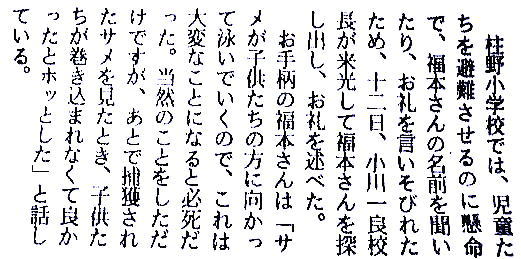 柱野小学校では、児童た
ちを避難させるのに懸命
で、福本さんの名前を聞い
たり、お礼を言いそびれた
ため、十二日、小川一良校
長が来光して福本さんを探
し出し、お礼を述べた。
お手柄の福本さんは「サ
メが子供たちの方に向かっ
て泳いでいくので、これは
大変なことになると必死だ
った。当然のことをしただ
けですが、あとで捕獲され
たサメを見たとき、子供た
ちが巻き込まれなくて良か
ったとホッとした」と話し
ている。